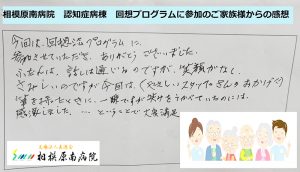 相模原南病院　認知症病棟　回想プログラムに参加のご家族様からの感想
今回は、回想法プログラムに
参加させていただき、ありがとうございました。
ふだんは、話しは通じるのですが、笑顔がなく、
さみしいのですが今回は、(やさしいスタッフさんのあかげで)
で、一瞬ですが笑みをうかべているのには、
感激しました。 … ということで大変満足
相模原南病院